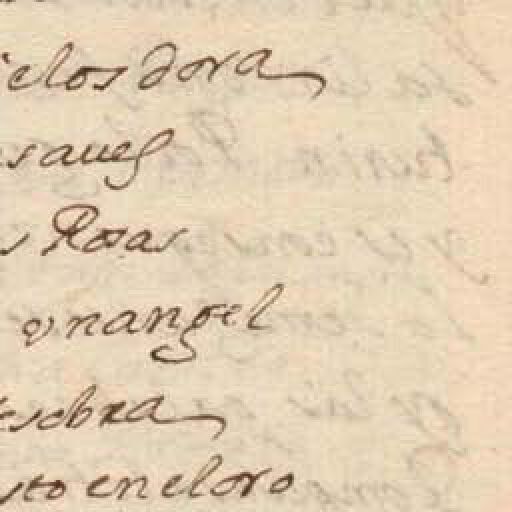 ielos dora
s aues
s Rosas
vn angel
esobra
sto en el oro